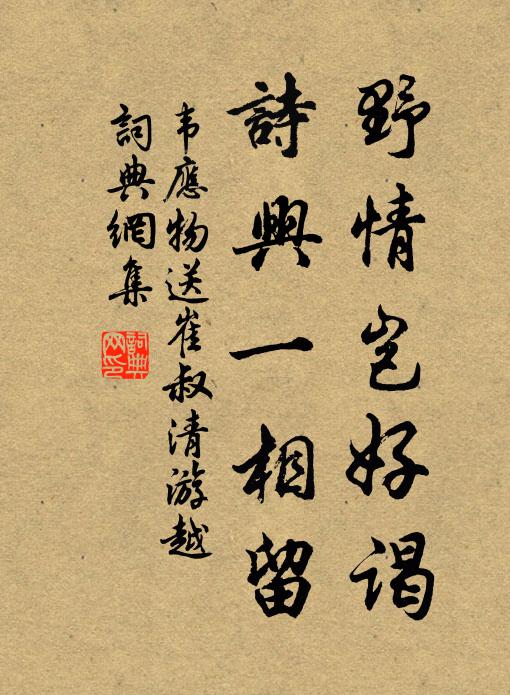 野情岂好谒
詩興一相留
韦應物送崔叔清游越
詞典網集
詞典网印